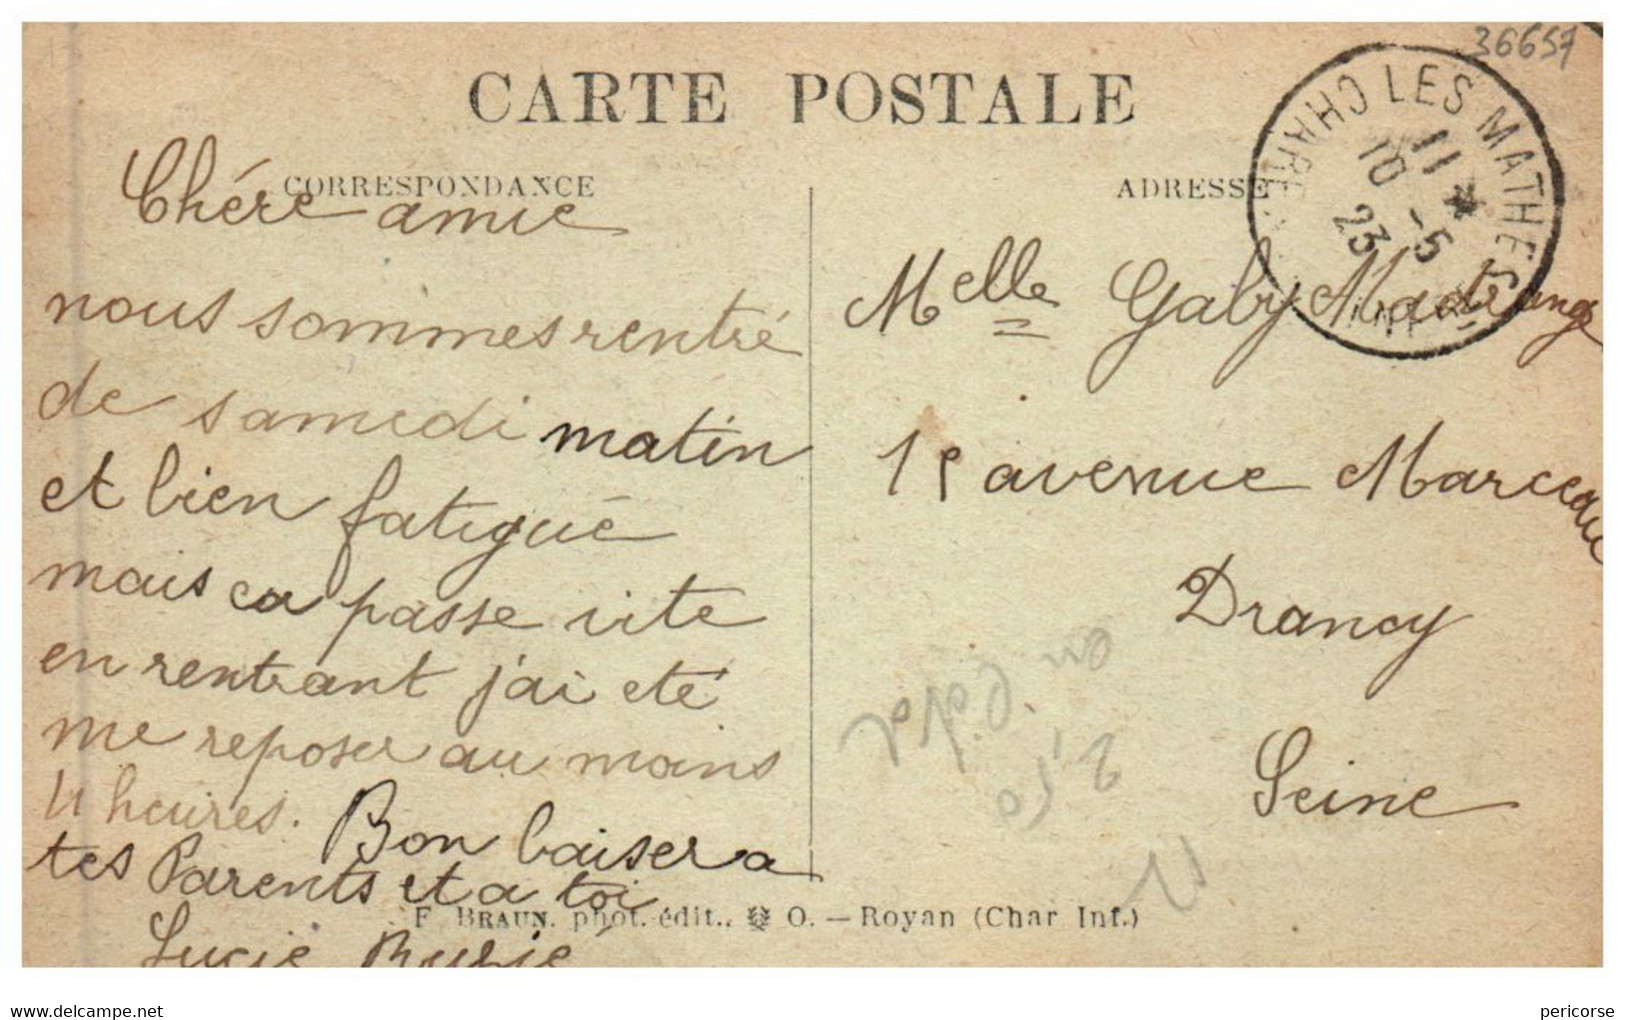 36657
CARTE POSTALE
CORRESPONDANCE
ADRESSE
LES MATHES
CHARE
INFRE
11 *
10 -5
23
Chére amie
nous sommes rentré
de samedi matin
et bien fatigué
mais ca passe vite
en rentrant j'ai eté
me reposer au moins
4 heures. Bon baiser a
tes Parents et a toi
Lucie
Melle Gaby
avenue Marceau
Drancy
Seine
F. BRAUN. phot. édit.. O. — Royan (Char Inf.)
www.delcampe.net
pericorse